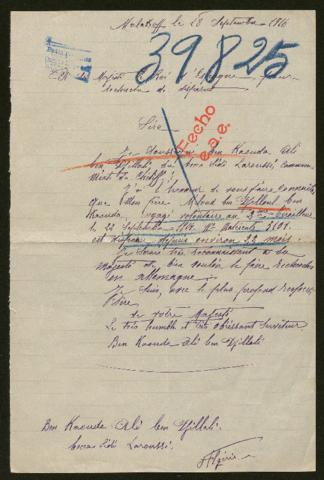 Malakoff le 28 Septembre 1916
39825
Majesté Roi d'Espagne pour
recherche de disparu
Sire
Fecho
e.a.e.
Je soussigné Ben Kaouda Ali
ben Djillali du douar Sidi Laroussi, commune
Mixte du Chéliff!
J'ai l'honneur de vous faire connaître
que Mon frère Miloud ben Djilloul ben
Kaouda, engagé volontaire au 2me Tirailleur
le 22 Septembre 1914. Nle Matricule 3601.
est disparu depuis environ 22 mois
Je serais très reconnaissant à sa
Majesté de bien vouloir le faire rechercher
en Allemagne
Je suis, avec le plus profond respect
Sire
de votre Majesté
Le très humble et très obéissant serviteur
Ben Kaouda Ali ben Djillali
Ben Kaouda Ali ben Djillali
Sidi Laroussi.
Algérie